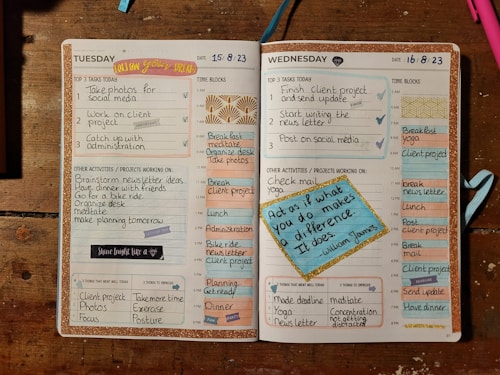 TUESDAY
DATE 15/8/23
TOP 3 TASKS TODAY
1 Take photos for
social media
2 Work on client
project
3 Catch up with
administration
OTHER ACTIVITIES / PROJECTS WORKING ON:
Brainstorm newsletter ideas
Have dinner with friends
Go for a bike ride
Organize desk
meditate
make planning tomorrow
Shine bright like a
3 THINGS THAT WENT WELL TODAY
Client project
Photos
Focus
3 THINGS TO IMPROVE
Take more time
Exercise
Posture
TIME BLOCKS
Breakfast
meditate
Organize desk
Take photos
Break
client project
Lunch
Administration
Bike ride
newsletter
Client project
Planning
Get ready
Dinner
WEDNESDAY
DATE 16/8/23
TOP 3 TASKS TODAY
1 Finish client project
and send update
2 Start writing the
news letter
3 Post on social media
OTHER ACTIVITIES / PROJECTS WORKING ON:
Check mail
yoga
Act as if what
you do makes
a difference.
It does.
William James
3 THINGS THAT WENT WELL TODAY
Made deadline
Yoga
News letter
3 THINGS TO IMPROVE
meditate
Concentration
not getting
distracted
TIME BLOCKS
Breakfast
yoga
Client project
break
news letter
Lunch
Post
client project
Break
mail
Client project
Send update
Have dinner